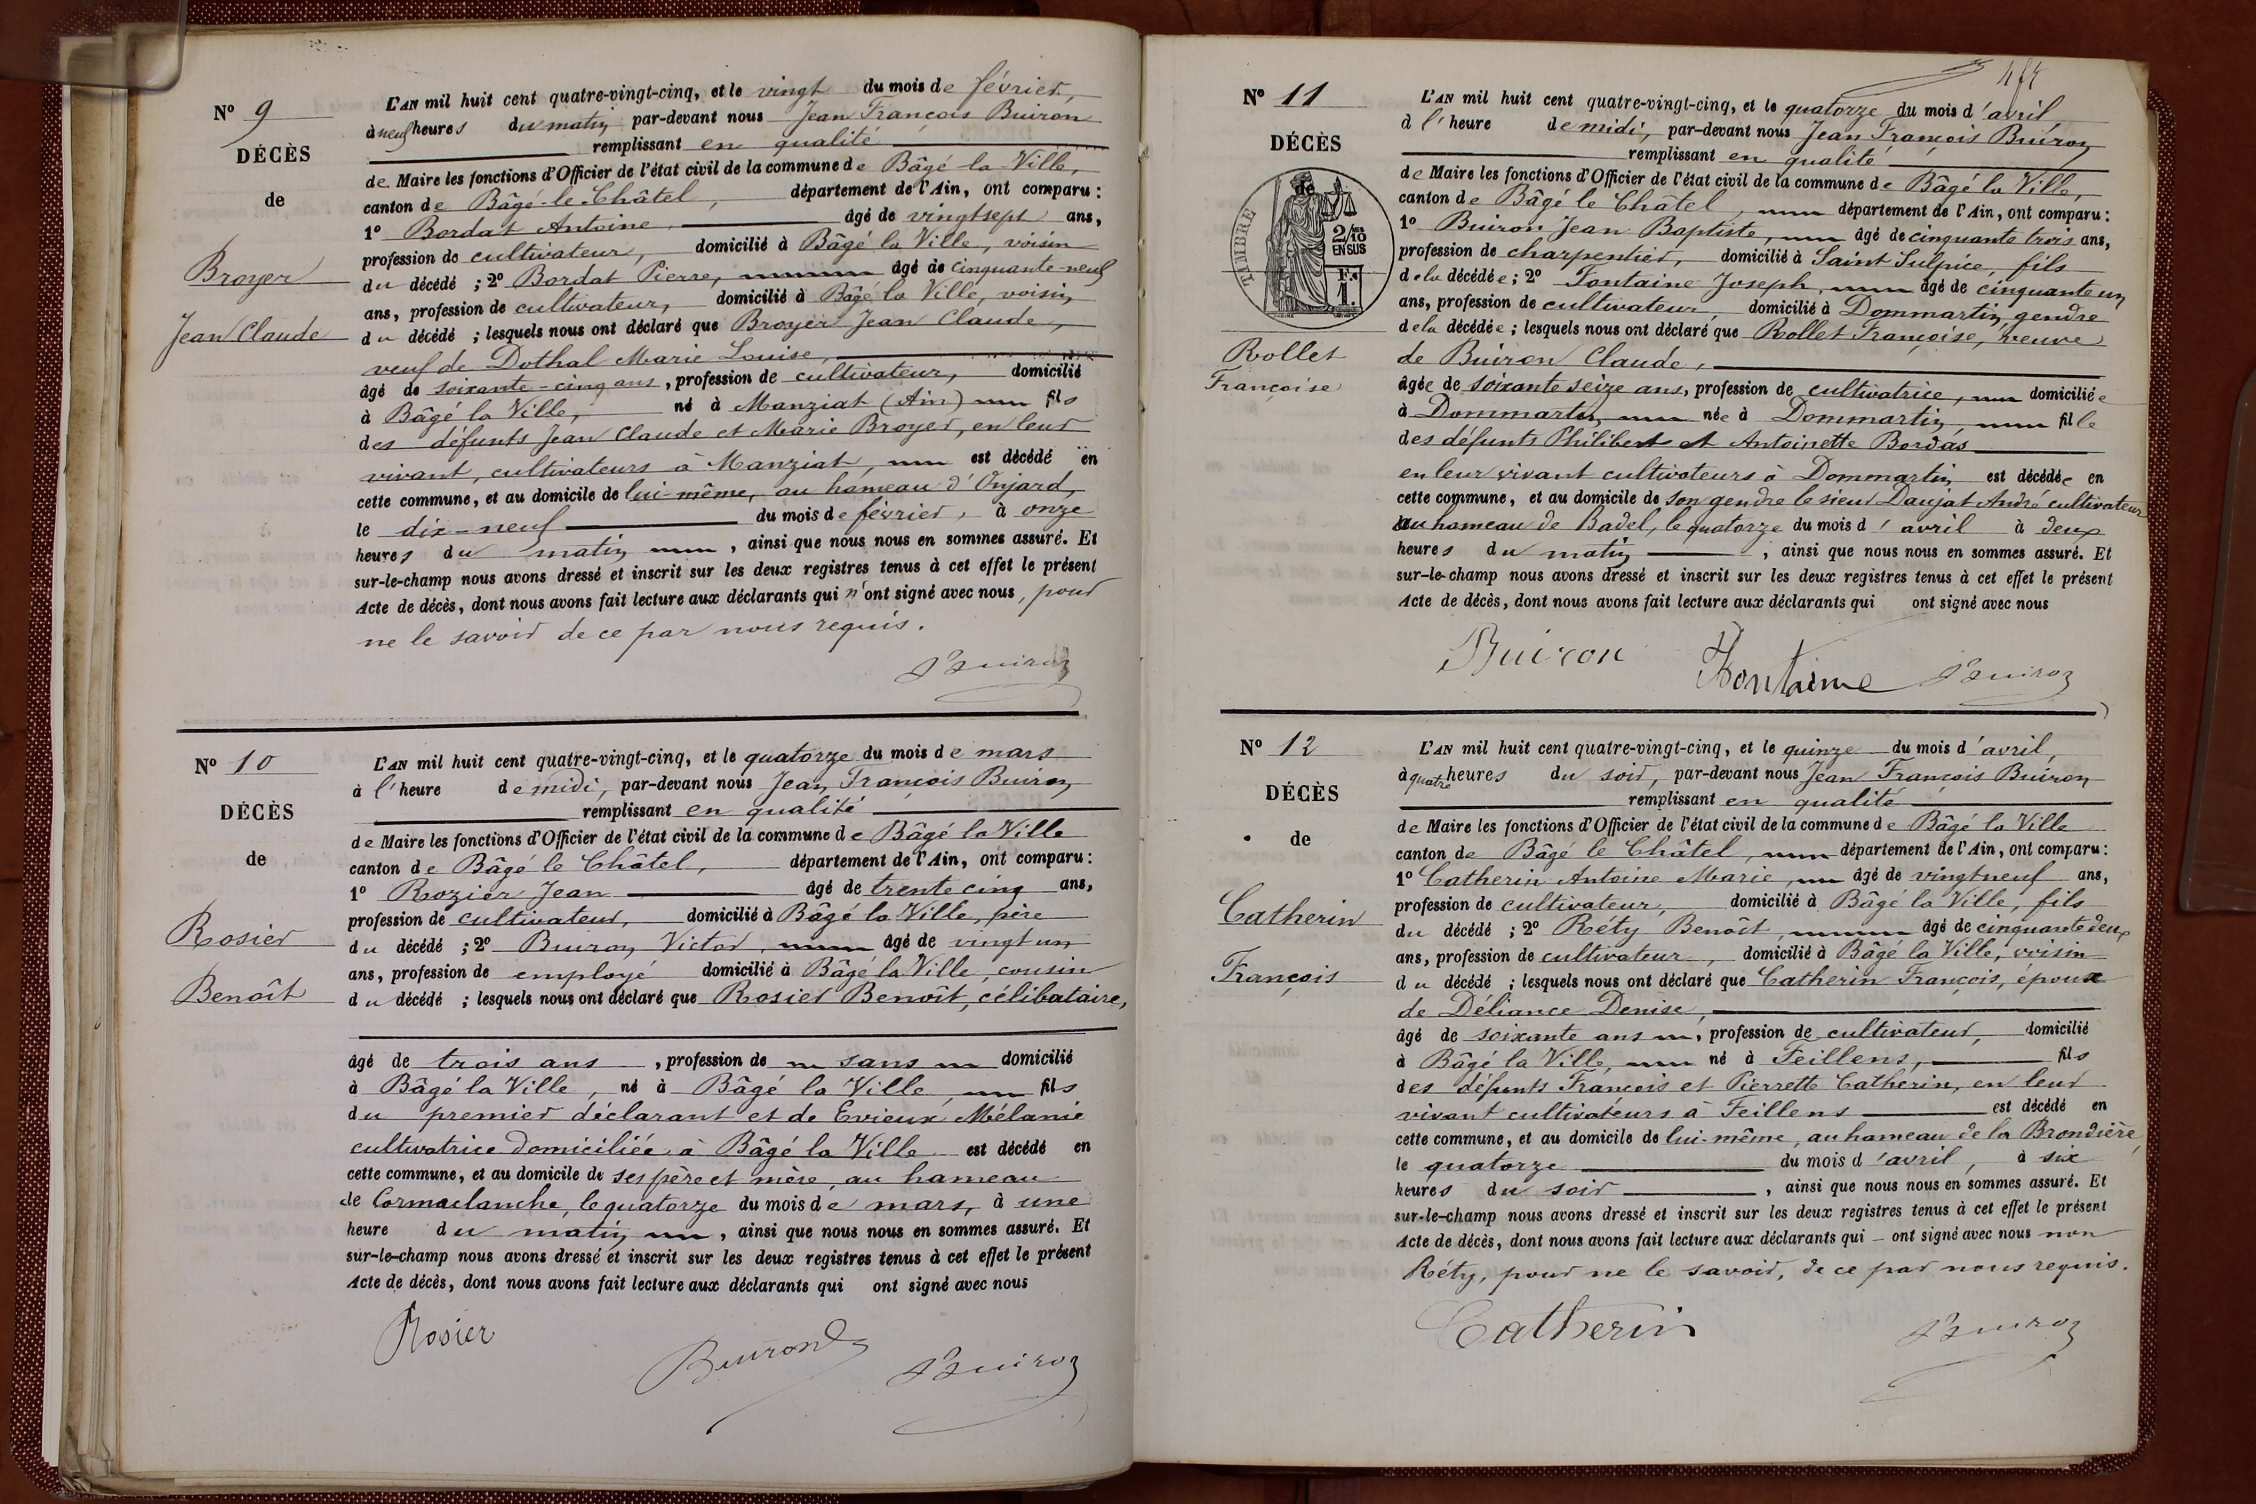 Nº 9
DÉCÈS
de
Broyer
Jean Claude
L'AN mil huit cent quatre-vingt-cinq, et le vingt du mois de février,
à neuf heures du matin par-devant nous Jean François Buiron
remplissant en qualité
de Maire les fonctions d'Officier de l'état civil de la commune de Bâgé la Ville,
canton de Bâgé-le-Châtel, département de l'Ain, ont comparu :
1º Bordat Antoine, âgé de vingt sept ans,
profession de cultivateur, domicilié à Bâgé la Ville, voisin
du décédé ; 2º Bordat Pierre, âgé de cinquante-neuf
ans, profession de cultivateur, domicilié à Bâgé la Ville, voisin
du décédé ; lesquels nous ont déclaré que Broyer Jean Claude,
veuf de Dothal Marie Louise,
âgé de soixante-cinq ans, profession de cultivateur, domicilié
à Bâgé la Ville, né à Manziat (Ain) fils
des défunts Jean Claude et Marie Broyer, en leur
vivant, cultivateurs à Manziat, est décédé en
cette commune, et au domicile de lui-même, au hameau d'Onjard,
le dix-neuf du mois de février, à onze
heures du matin, ainsi que nous nous en sommes assuré. Et
sur-le-champ nous avons dressé et inscrit sur les deux registres tenus à cet effet le présent
Acte de décès, dont nous avons fait lecture aux déclarants qui n'ont signé avec nous, pour
ne le savoir de ce par nous requis.
Buiron
Nº 10
DÉCÈS
de
Rosier
Benoît
L'AN mil huit cent quatre-vingt-cinq, et le quatorze du mois de mars
à l'heure de midi, par-devant nous Jean François Buiron
remplissant en qualité
de Maire les fonctions d'Officier de l'état civil de la commune de Bâgé la Ville
canton de Bâgé le Châtel, département de l'Ain, ont comparu :
1º Rozier Jean âgé de trente cinq ans,
profession de cultivateur, domicilié à Bâgé la Ville, père
du décédé ; 2º Buiron Victor, âgé de vingt un
ans, profession de employé domicilié à Bâgé la Ville, cousin
du décédé ; lesquels nous ont déclaré que Rosier Benoît, célibataire,
âgé de trois ans, profession de sans domicilié
à Bâgé la Ville, né à Bâgé la Ville, fils
du premier déclarant et de Evieux Mélanie
cultivatrice domiciliée à Bâgé la Ville est décédé en
cette commune, et au domicile de ses père et mère, au hameau
de Cormaclanche, le quatorze du mois de mars, à une
heure du matin, ainsi que nous nous en sommes assuré. Et
sur-le-champ nous avons dressé et inscrit sur les deux registres tenus à cet effet le présent
Acte de décès, dont nous avons fait lecture aux déclarants qui ont signé avec nous
Rosier
Buiron
Buiron
Nº 11
DÉCÈS
TIMBRE
2/10ES
EN SUS
1F.
Rollet
Françoise
L'AN mil huit cent quatre-vingt-cinq, et le quatorze du mois d'avril
à l'heure de midi, par-devant nous Jean François Buiron
remplissant en qualité
de Maire les fonctions d'Officier de l'état civil de la commune de Bâgé la Ville,
canton de Bâgé le Châtel, département de l'Ain, ont comparu :
1º Buiron Jean Baptiste, âgé de cinquante trois ans,
profession de charpentier, domicilié à Saint Sulpice, fils
de la décédée ; 2º Fontaine Joseph, âgé de cinquante un
ans, profession de cultivateur domicilié à Dommartin, gendre
de la décédée ; lesquels nous ont déclaré que Rollet Françoise, veuve
de Buiron Claude,
âgée de soixante seize ans, profession de cultivatrice, domiciliée
à Dommartin, née à Dommartin, fille
des défunts Philibert et Antoinette Bordas
en leur vivant cultivateurs à Dommartin est décédée en
cette commune, et au domicile de son gendre le sieur Daujat André cultivateur
au hameau de Badel, le quatorze du mois d'avril à deux
heures du matin, ainsi que nous nous en sommes assuré. Et
sur-le-champ nous avons dressé et inscrit sur les deux registres tenus à cet effet le présent
Acte de décès, dont nous avons fait lecture aux déclarants qui ont signé avec nous
Buiron
Fontaine
Buiron
Nº 12
DÉCÈS
de
Catherin
François
L'AN mil huit cent quatre-vingt-cinq, et le quinze du mois d'avril,
à quatre heures du soir, par-devant nous Jean François Buiron
remplissant en qualité
de Maire les fonctions d'Officier de l'état civil de la commune de Bâgé la Ville
canton de Bâgé le Châtel, département de l'Ain, ont comparu :
1º Catherin Antoine Marie, âgé de vingt neuf ans,
profession de cultivateur, domicilié à Bâgé la Ville, fils
du décédé ; 2º Réty Benoît, âgé de cinquante deux
ans, profession de cultivateur, domicilié à Bâgé la Ville, voisin
du décédé ; lesquels nous ont déclaré que Catherin François, époux
de Déliance Denise,
âgé de soixante ans, profession de cultivateur, domicilié
à Bâgé la Ville, né à Feillens, fils
des défunts François et Pierrette Catherin, en leur
vivant cultivateurs à Feillens est décédé en
cette commune, et au domicile de lui-même, au hameau de la Brondière,
le quatorze du mois d'avril, à six
heures du soir, ainsi que nous nous en sommes assuré. Et
sur-le-champ nous avons dressé et inscrit sur les deux registres tenus à cet effet le présent
Acte de décès, dont nous avons fait lecture aux déclarants qui ont signé avec nous non
Réty, pour ne le savoir, de ce par nous requis.
Catherin
Buiron